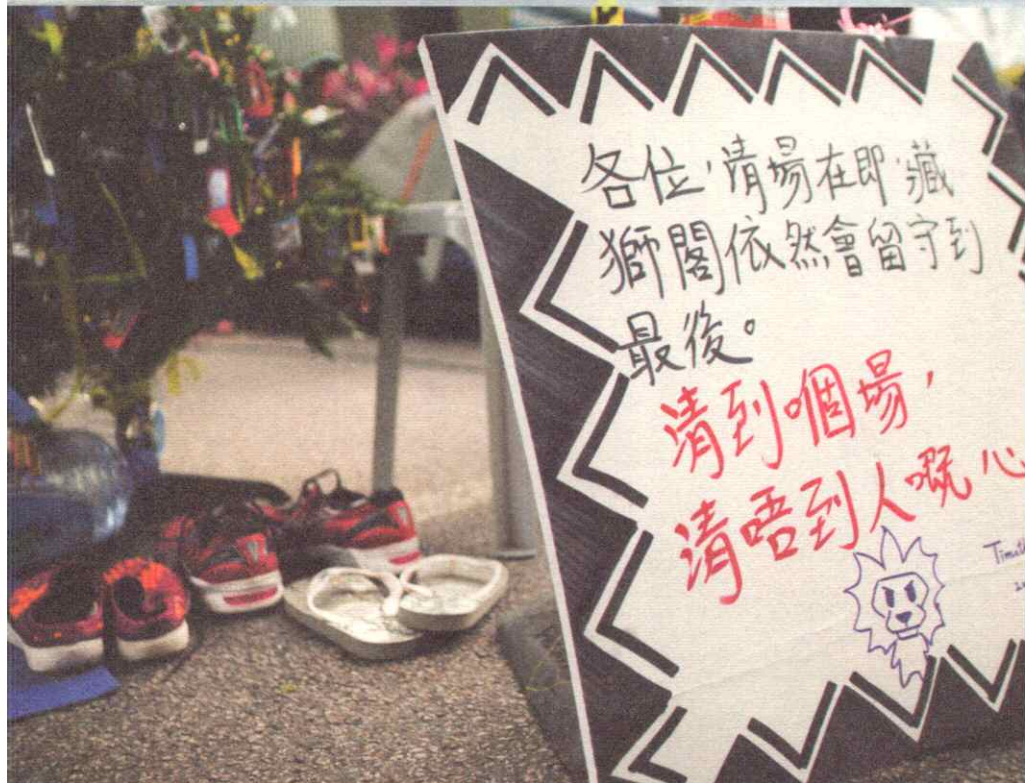 各位,清場在即,藏
獅閣依然會留守到
最後。
清到嗰場,
清唔到人嘅心